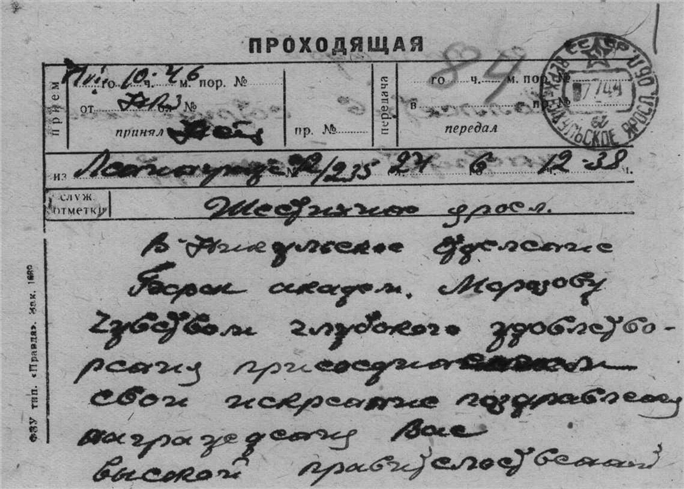 ПРОХОДЯЩАЯ
84
ПРИЕМ го 10 ч. 46 м. пор. № передача го ч. м. пор. №
от № в
принял пр. № передал
из Ленинграда 12/235 24 6 12-38 ч.
СЛУЖ. ОТМЕТКИ
Шестихино яросл.
В-Никульское отделение
Борок академ. Морозову
Чувством глубокого удовлетво-
рения присоединяем
свои искренние поздравления
награждения Вас
высокой правительственной
ФЗУ тип. «Правда». Зак. 1680